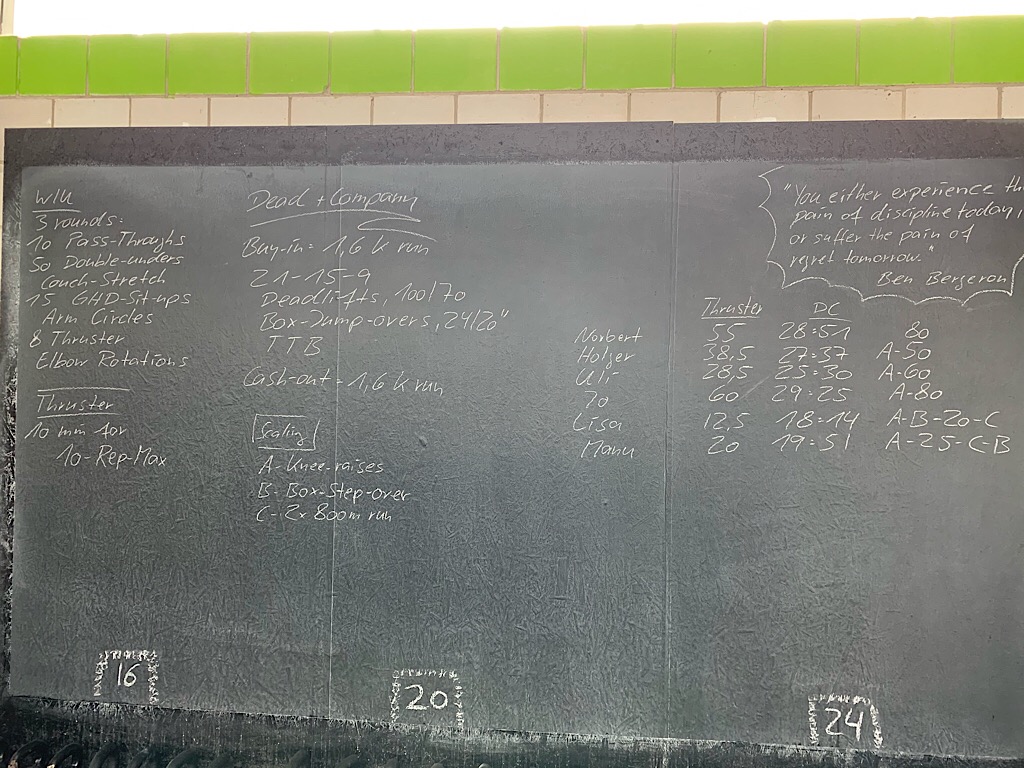 W/U
3 rounds:
10 Pass-Throughs
50 Double-unders
Couch-Stretch
15 GHD-Sit-ups
Arm Circles
8 Thruster
Elbow Rotations
Thruster
10 min for
10-Rep-Max
Dead + Company
Buy-in = 1,6 k run
21-15-9
Deadlifts, 100/70
Box-Jump-overs, 24/20"
TTB
Cash-out = 1,6 k run
Scaling
A- Knee-raises
B- Box-Step-over
C- 2x 800m run
"You either experience the
pain of discipline today,
or suffer the pain of
regret tomorrow."
Ben Bergeron
Thruster DC
Norbert 55 28:51 80
Holger 38,5 27:37 A-50
Uli 28,5 25:30 A-60
Jo 60 29:25 A-80
Lisa 12,5 18:14 A-B-20-C
Manu 20 19:51 A-25-C-B
16
20
24